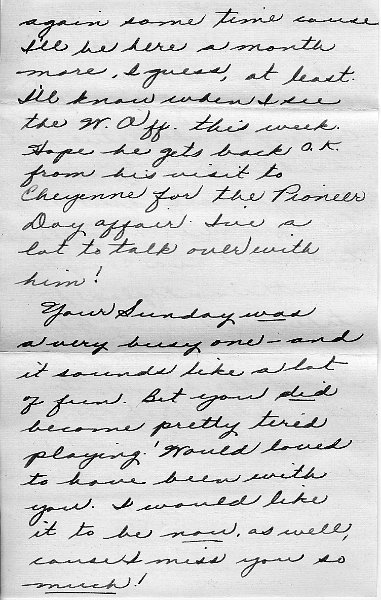 again some time cause
I'll be here a month
more, I guess, at least.
I'll know when I see
the W. Off. this week.
Hope he gets back O.K.
from his visit to
Cheyenne for the Pioneer
Day affair. I've a
lot to talk over with
him!
Your Sunday was
a very busy one - and
it sounds like a lot
of fun. Bet you did
become pretty tired
playing! Would loved
to have been with
you. I would like
it to be now, as well,
cause I miss you so
much!